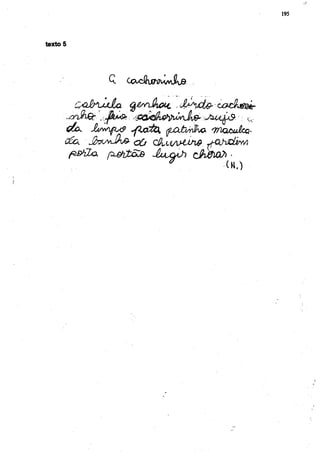 195
texto 5
O cachorrinho
Gabriela genhou lindo cachorri-
nho feio cachorrinho sujo
da limpo pata patinha macuca-
da banho do chuveiro jardim
porta portão fugir chorar.
(N.)